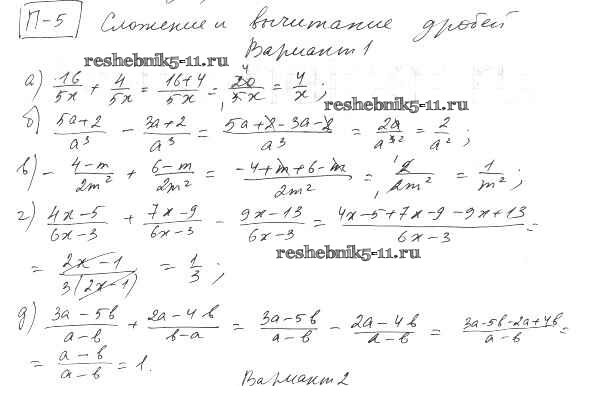 П-5 Сложение и вычитание дробей
Вариант 1
reshebnik5-11.ru
а) 16/5x + 4/5x = (16+4)/5x = 20/5x = 4/x ;
reshebnik5-11.ru
б) (5a+2)/a³ - (3a+2)/a³ = (5a+2-3a-2)/a³ = 2a/a³ = 2/a² ;
в) - (4-m)/2m² + (6-m)/2m² = (-4+m+6-m)/2m² = 2/2m² = 1/m² ;
г) (4x-5)/(6x-3) + (7x-9)/(6x-3) - (9x-13)/(6x-3) = (4x-5+7x-9-9x+13)/(6x-3) =
reshebnik5-11.ru
= (2x-1)/3(2x-1) = 1/3 ;
д) (3a-5b)/(a-b) + (2a-4b)/(b-a) = (3a-5b)/(a-b) - (2a-4b)/(a-b) = (3a-5b-2a+4b)/(a-b) =
= (a-b)/(a-b) = 1.
Вариант 2